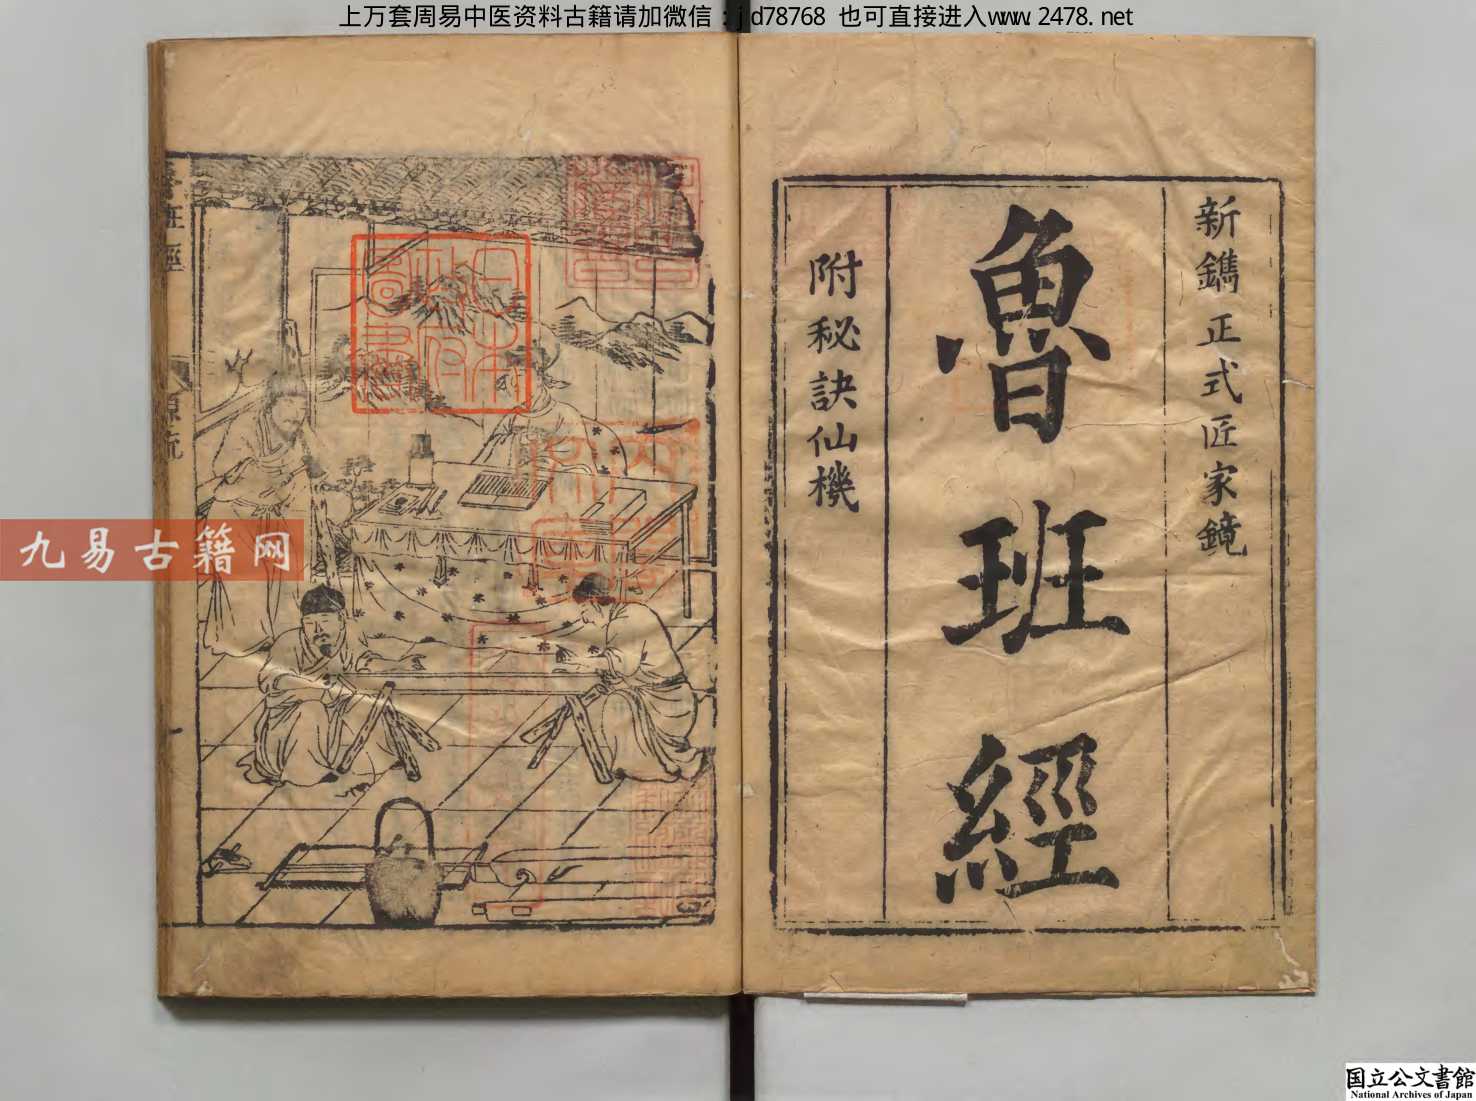 上万套周易中医资料古籍请加微信：jd78768 也可直接进入www.2478.net
新鐫正式匠家鏡
魯班經
附秘訣仙機
魯班經
源流
日本
政府
圖書
九易古籍网
国立公文書館
National Archives of Japan